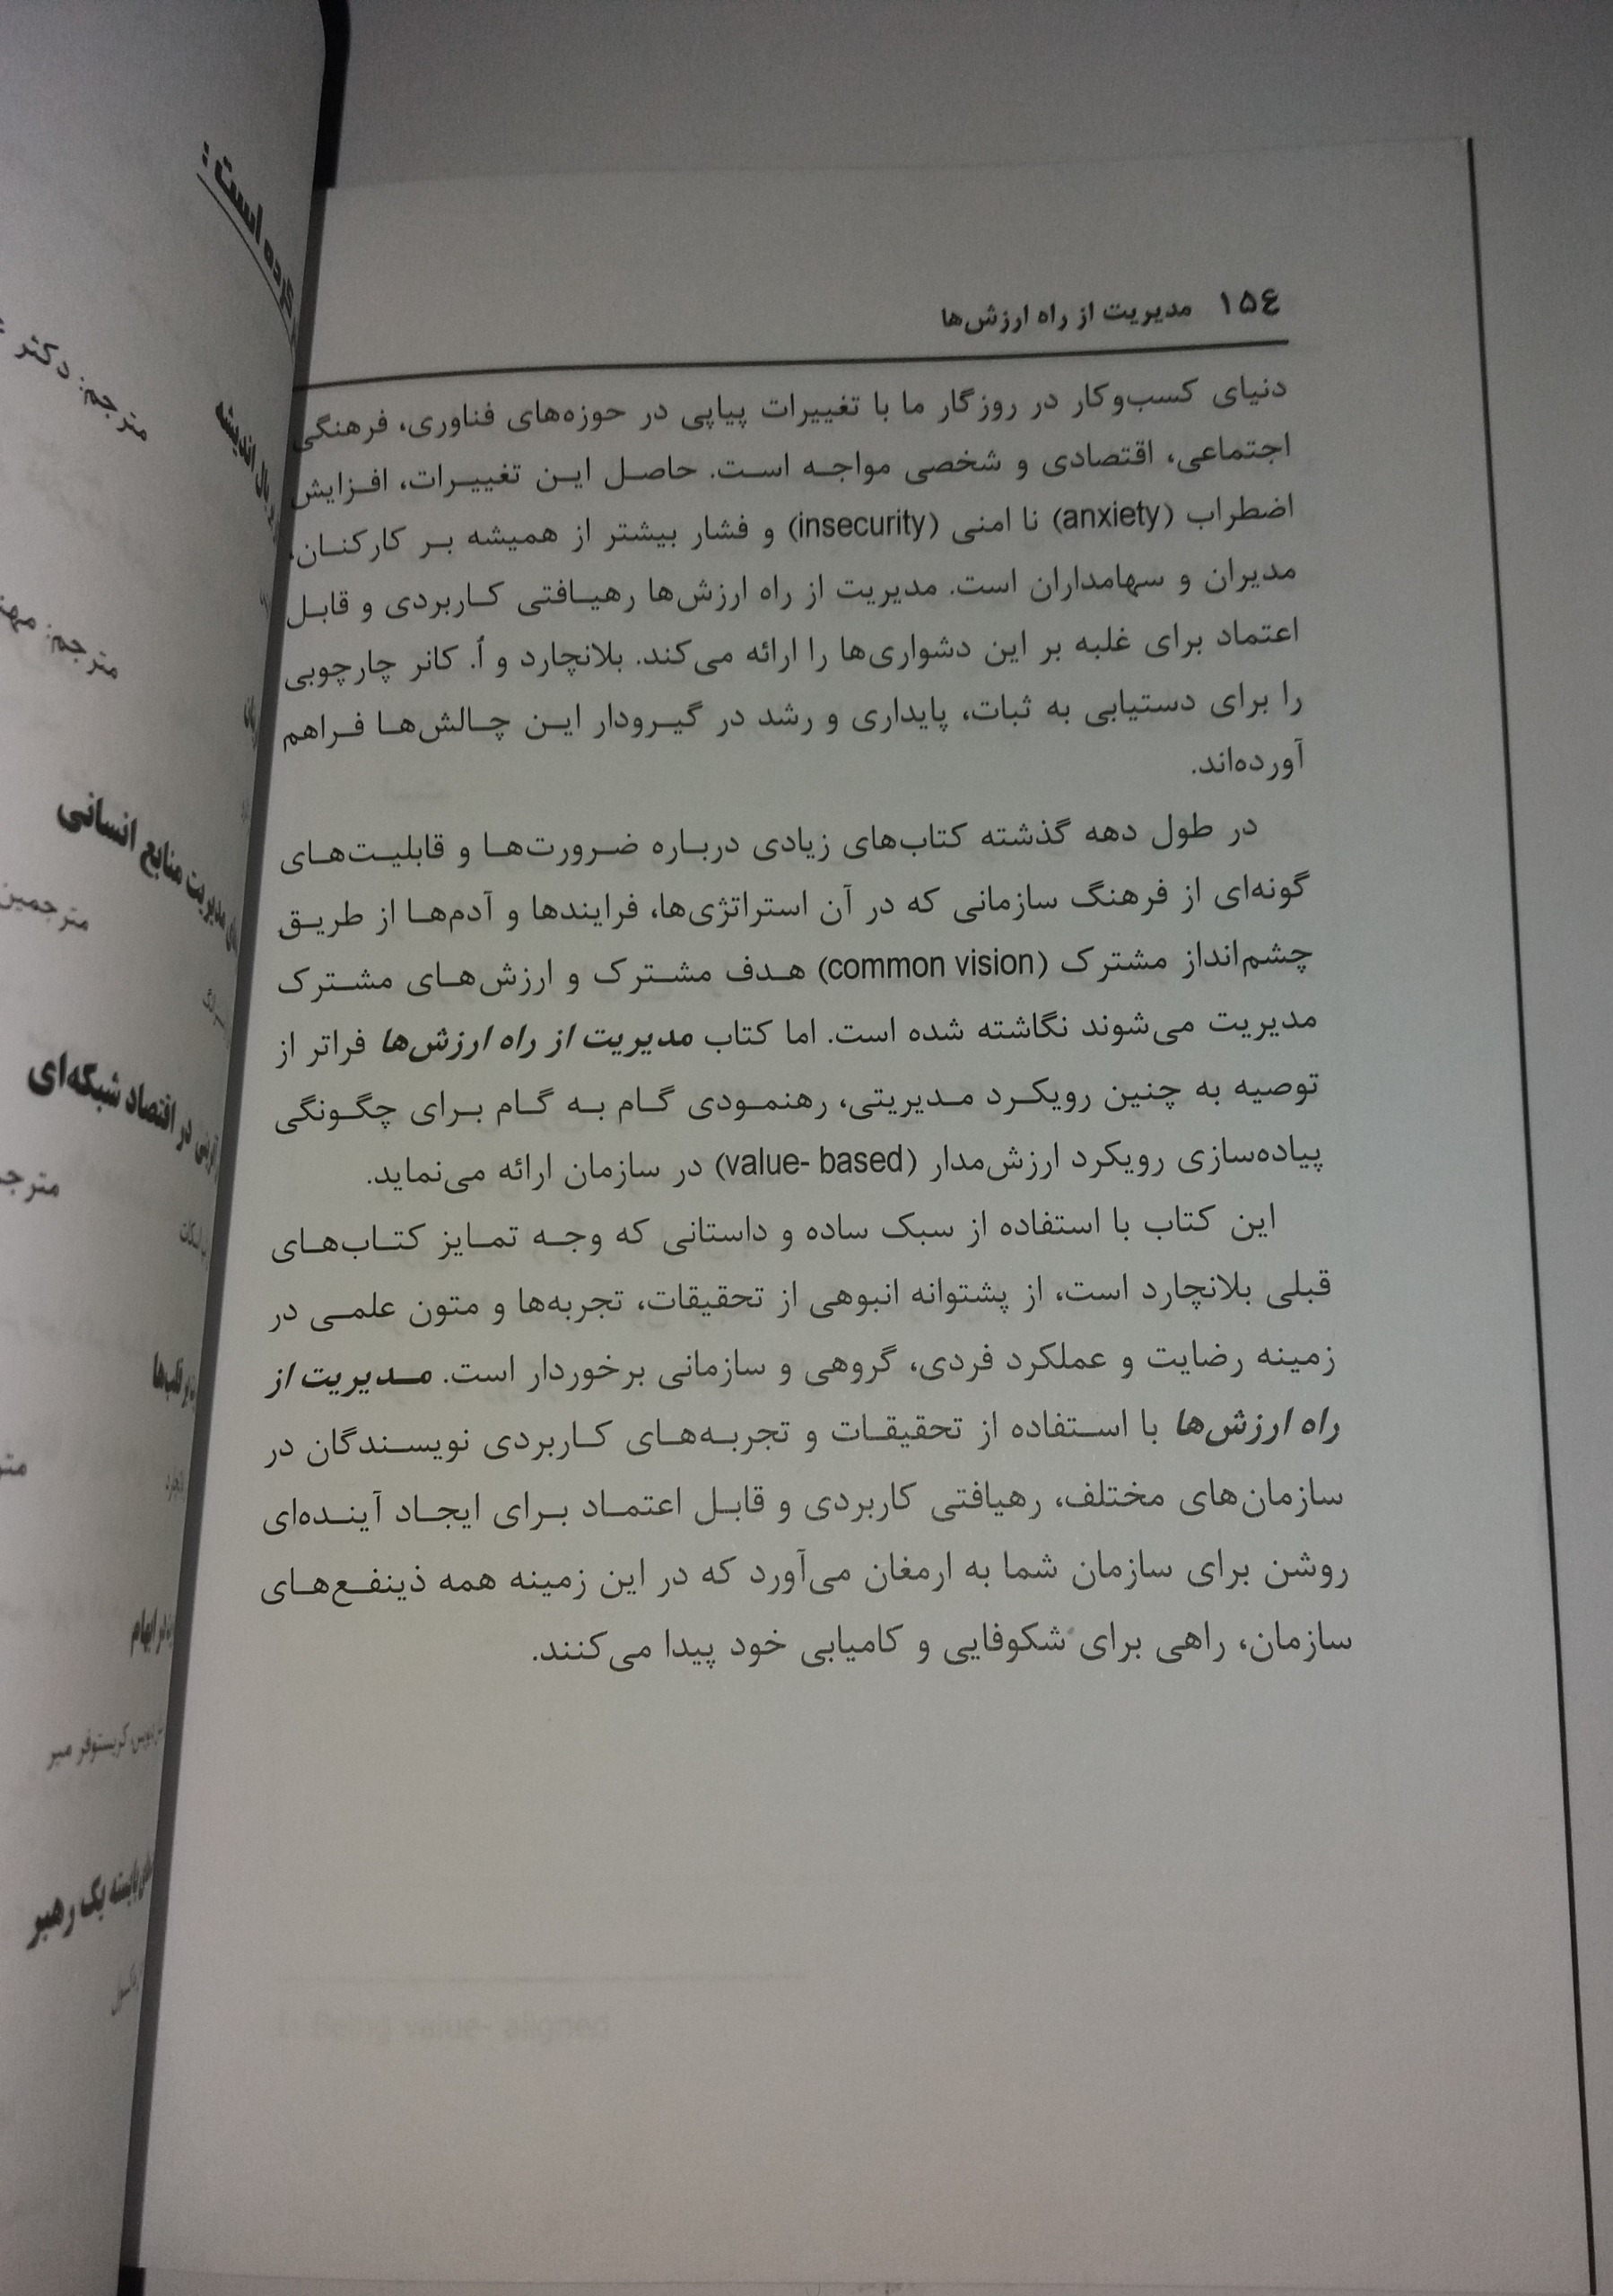 ۱۵۶ مدیریت از راه ارزش‌ها
دنیای کسب‌وکار در روزگار ما با تغییرات پیاپی در حوزه‌های فناوری، فرهنگی
اجتماعی، اقتصادی و شخصی مواجه است. حاصل این تغییرات، افزایش
اضطراب (anxiety) نا امنی (insecurity) و فشار بیشتر از همیشه بر کارکنان،
مدیران و سهامداران است. مدیریت از راه ارزش‌ها رهیافتی کاربردی و قابل
اعتماد برای غلبه بر این دشواری‌ها را ارائه می‌کند. بلانچارد و اُ. کانر چارچوبی
را برای دستیابی به ثبات، پایداری و رشد در گیرودار این چالش‌ها فراهم
آورده‌اند.
در طول دهه گذشته کتاب‌های زیادی درباره ضرورت‌ها و قابلیت‌های
گونه‌ای از فرهنگ سازمانی که در آن استراتژی‌ها، فرایندها و آدم‌ها از طریق
چشم‌انداز مشترک (common vision) هدف مشترک و ارزش‌های مشترک
مدیریت می‌شوند نگاشته شده است. اما کتاب مدیریت از راه ارزش‌ها فراتر از
توصیه به چنین رویکرد مدیریتی، رهنمودی گام به گام برای چگونگی
پیاده‌سازی رویکرد ارزش‌مدار (value- based) در سازمان ارائه می‌نماید.
این کتاب با استفاده از سبک ساده و داستانی که وجه تمایز کتاب‌های
قبلی بلانچارد است، از پشتوانه انبوهی از تحقیقات، تجربه‌ها و متون علمی در
زمینه رضایت و عملکرد فردی، گروهی و سازمانی برخوردار است. مدیریت از
راه ارزش‌ها با استفاده از تحقیقات و تجربه‌های کاربردی نویسندگان در
سازمان‌های مختلف، رهیافتی کاربردی و قابل اعتماد برای ایجاد آینده‌ای
روشن برای سازمان شما به ارمغان می‌آورد که در این زمینه همه ذینفع‌های
سازمان، راهی برای شکوفایی و کامیابی خود پیدا می‌کنند.
Being value- aligned
است:
مترجم: دکتر
اندیشه
مترجم:
مدیریت منابع انسانی
مترجمین
در اقتصاد شبکه‌ای
قلب‌ها
ابهام
کریستوفر میر
بایسته یک رهبر